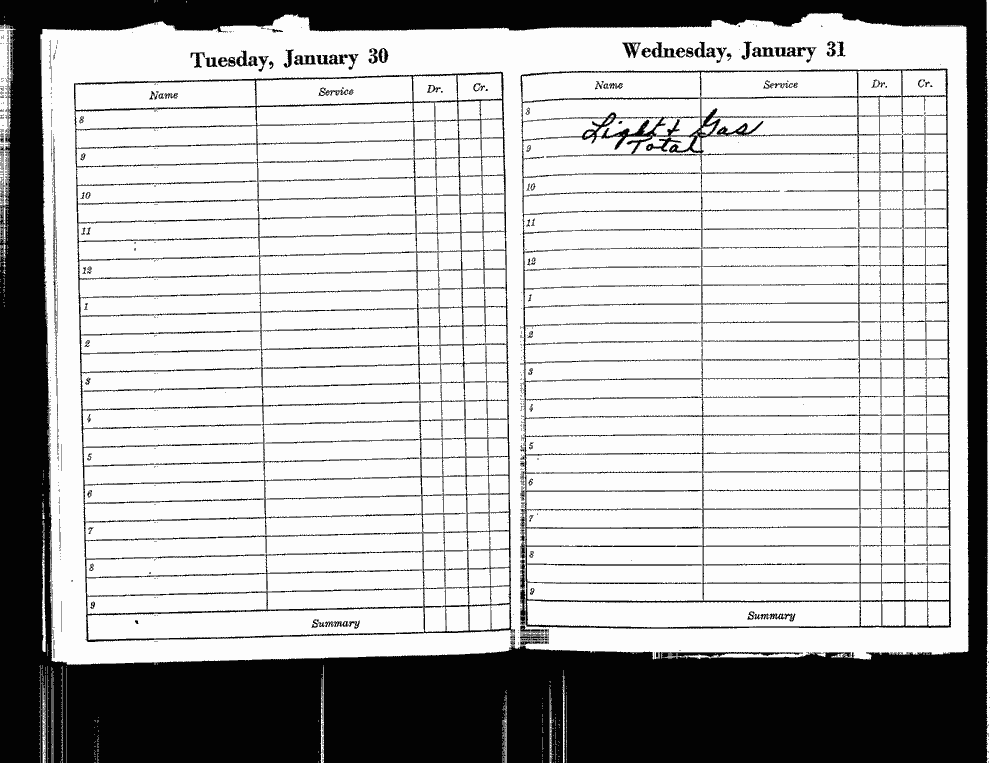 Tuesday, January 30
Name Service Dr. Cr.
8
9
10
11
12
1
2
3
4
5
6
7
8
9
Summary
Wednesday, January 31
Name Service Dr. Cr.
8
Light + Gas
9 Total
10
11
12
1
2
3
4
5
6
7
8
9
Summary